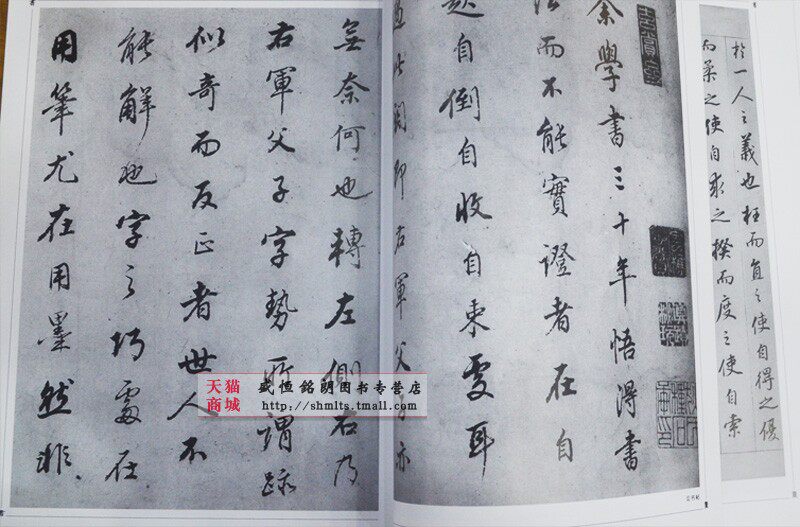 於一人之義也枉而直之使自得之優
而柔之使自求之揆而度之使自索
余學書三十年悟得書
法而不能實證者在自
起自倒自收自束處耳
過此關即右軍父子亦
無奈何也轉左側右乃
右軍父子字勢所謂跡
似奇而反正者世人不
能解也字之巧處在
用筆尤在用墨然非
天猫商城
盛恒銘朗图书专营店
http://shmlts.tmall.com